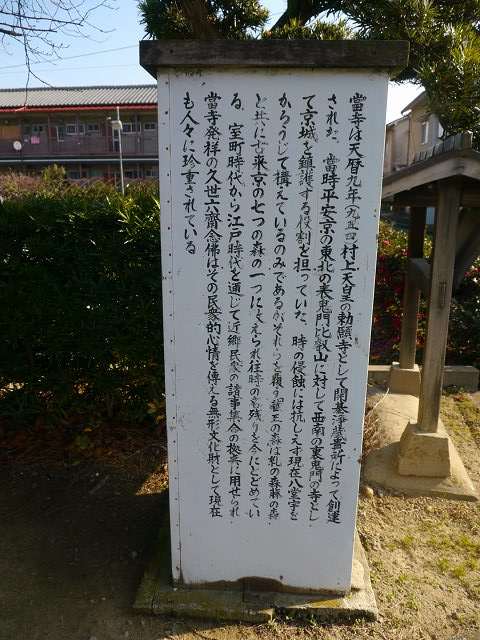 當寺は天暦九年九五四村上天皇の勅願寺として開基浄蔵貴所によって創建
されが。當時平安京の東北の表鬼門比叡山に対して西南の裏鬼門の寺とし
て京城を鎮護する役割を担っていた。時の侵蝕には抗しえず現在八堂宇を
かろうじて構えているのみであるがそれらを覆う蔵王の森は糺の森藤の森
と共に古来京の七つの森の一つにえられ往時の名残りを今にとどめてい
る。室町時代から江戸時代を通じて近郷民衆の諸事集会の拠点に用せられ
當寺発祥の久世六齋念佛はその民衆的心情を傳える無形文化財として現在
も人々に珍重されている